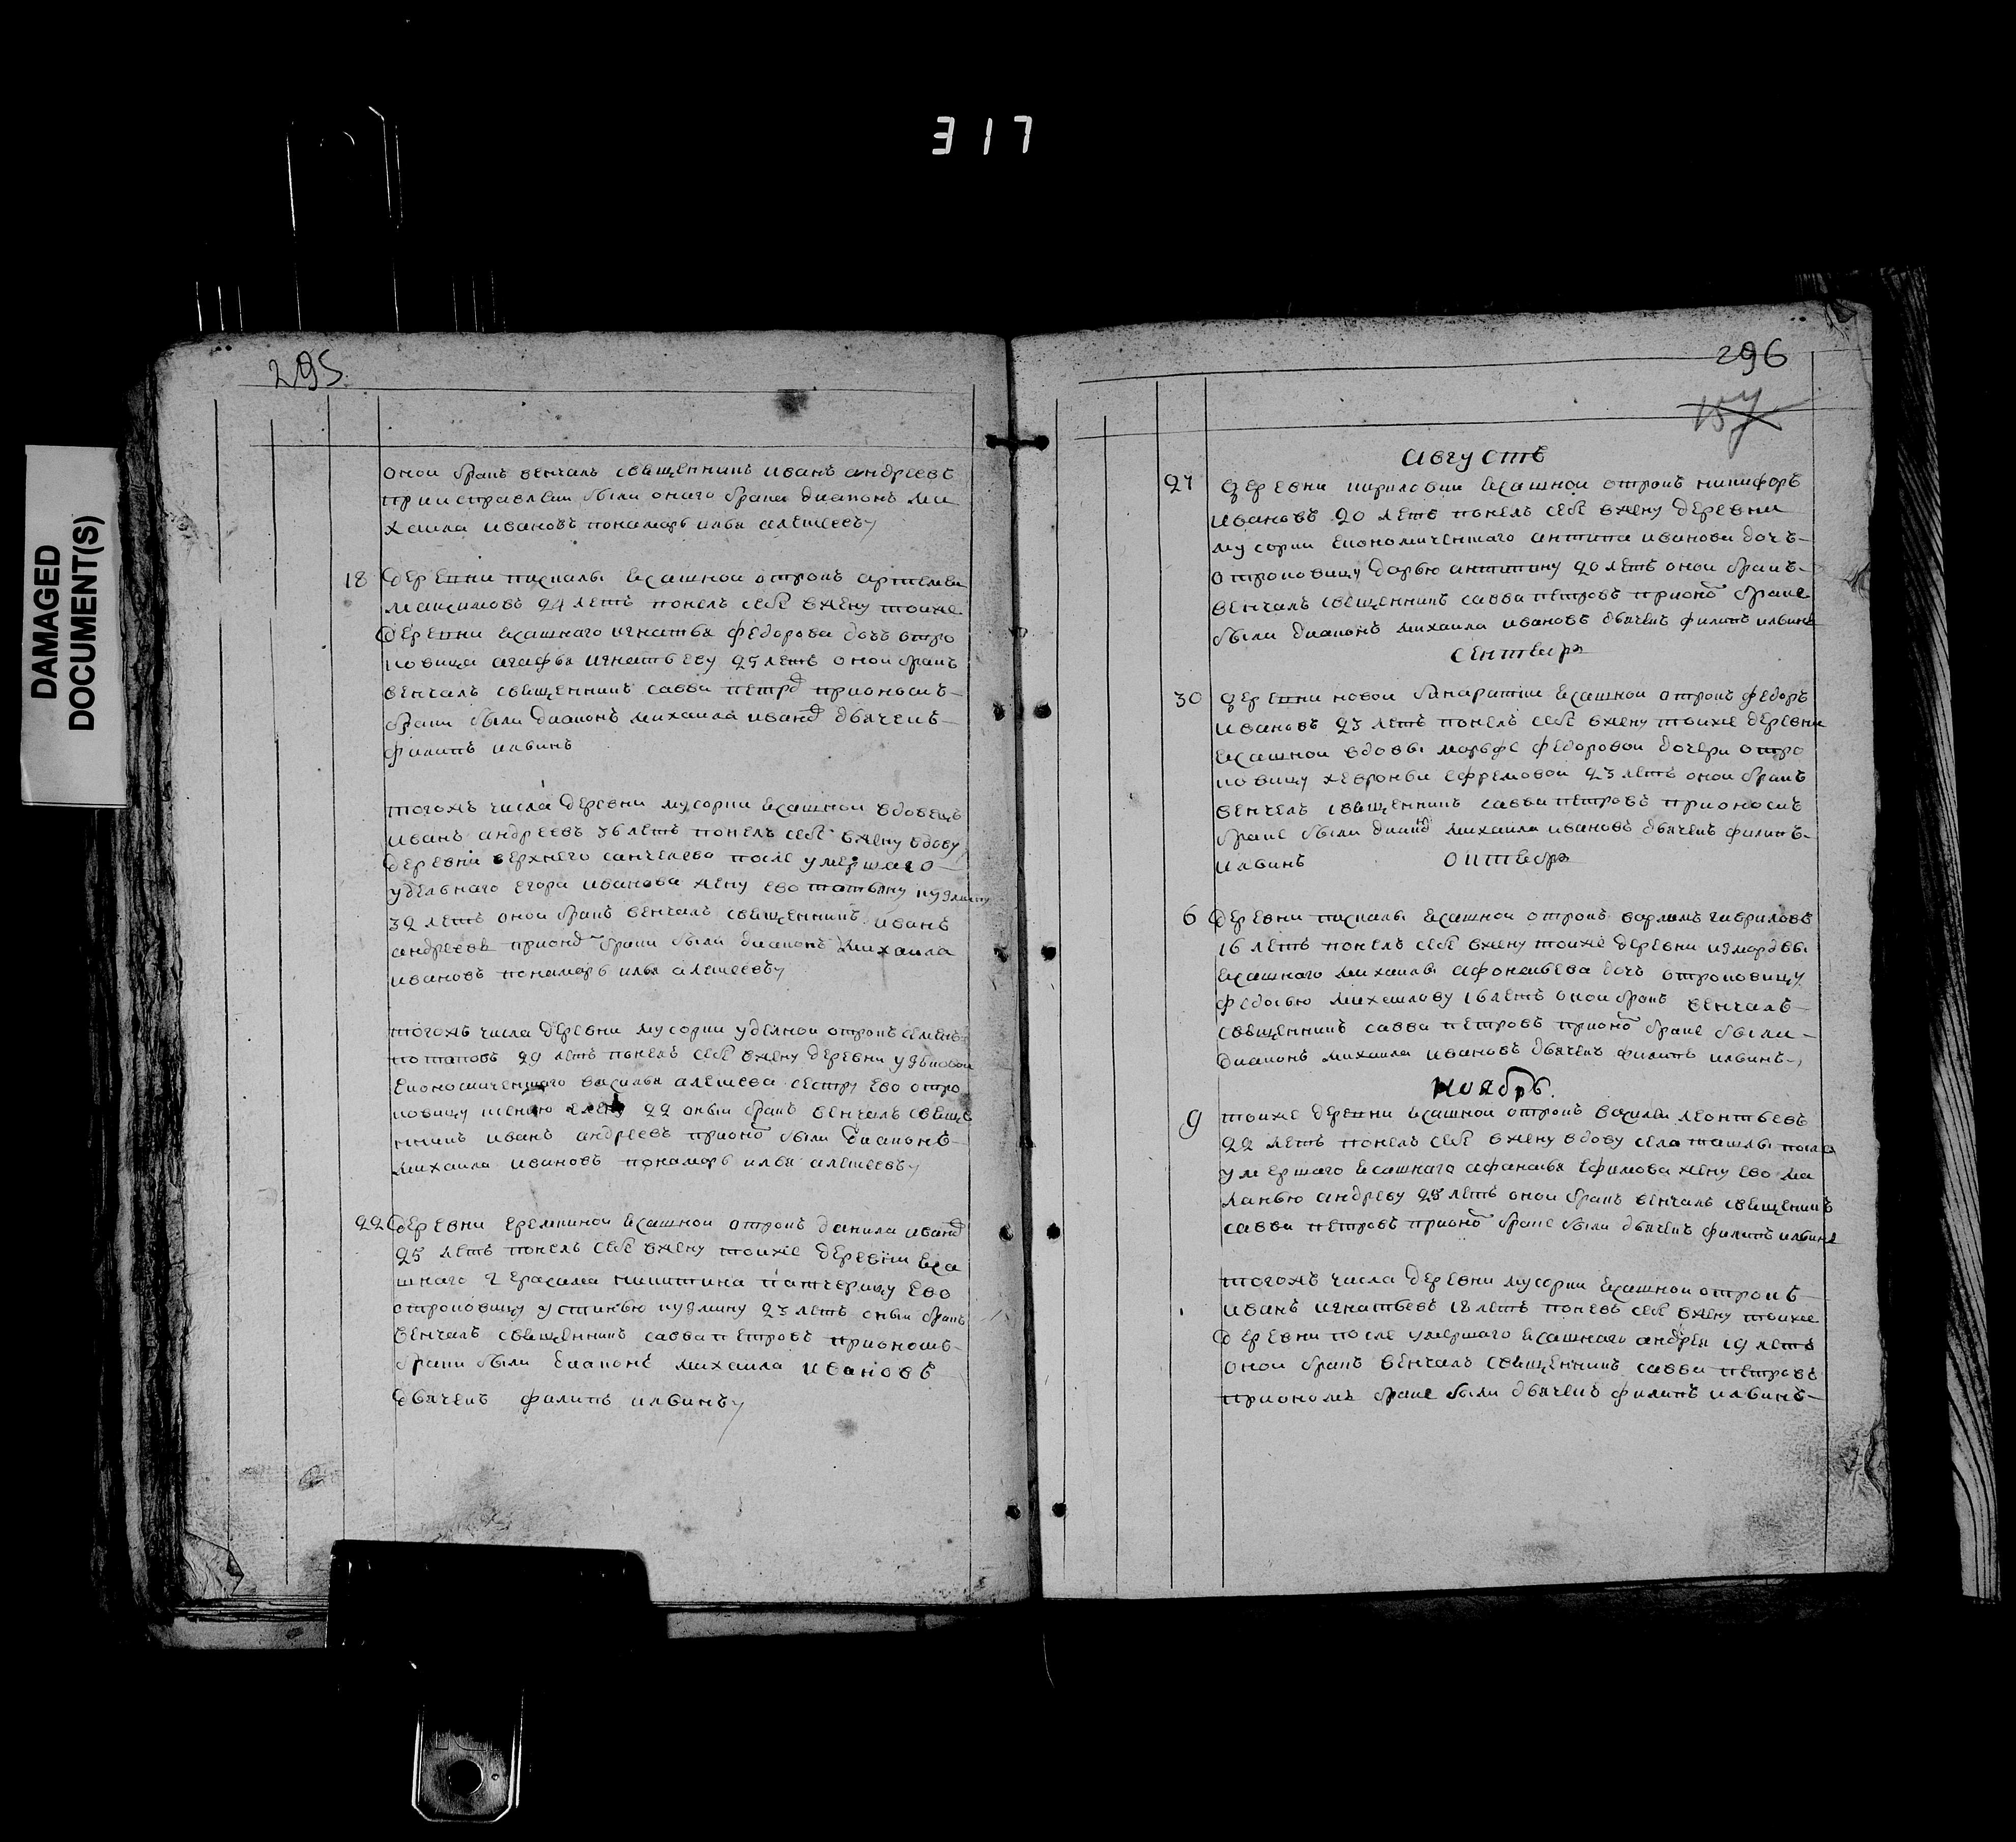 317
DAMAGED
DOCUMENT(S)
295
оной бракъ венчалъ священникъ иванъ андреевъ
при исправлении были онаго брака диаконъ ми
хаила ивановъ понамарь илья алексеевъ
18 деревни паскалы ясашной отрокъ артемеи
максимовъ 24 летъ понелъ себе вжену тоиже
деревни ясашнаго игнатья федорова дочь отро
ковица агафья игнатьеву 25 летъ оной бракъ
венчалъ священникъ савва петровъ приономъ
браки были диаконъ михаила ивановъ дьячекъ
филипъ ильинъ
тогожъ числа деревни мусорки ясашной вдовецъ
иванъ андреевъ 36 летъ понелъ себе вжену вдову
деревни верхнего санчелева после умершаго
удельнаго егора иванова жену ево татьяну кузмину
32 летъ оной бракъ венчалъ священникъ иванъ
андреевъ прионо браки были диаконъ михаила
ивановъ понамарь илья алексеевъ
тогожъ числа деревни мусорки уделной отрокъ семенъ
потаповъ 29 летъ понелъ себе вжену деревни
економическаго василья алексева сестру ево отро
ковицу 22 оный бракъ венчалъ свяще
нникъ иванъ андреевъ прионо были диаконъ
михаила ивановъ понамарь илья алексеевъ
22 деревни еремкиной ясашной отрокъ данила ивано
25 летъ понелъ себе вжену тоиже деревни яса
шнаго герасима никитина патчерицу ево
отроковицу устинью кузмину 23 летъ оный бракъ
венчалъ священникъ савва петровъ приономъ
браки были диаконъ михаила ивановъ
дьячекъ филипъ ильинъ
296
157
августъ
27 деревни кириловки ясашной отрокъ никифоръ
ивановъ 20 летъ понелъ себе вжену деревни
мусорки економическаго антипа иванова дочь
отроковицу дарью антипину 20 летъ оной бракъ
венчалъ священникъ савва петровъ прионо браке
были диаконъ михаила ивановъ дьячекъ филипъ ильинъ
сентября
30 деревни новой бинаратки ясашной отрокъ федоръ
ивановъ 23 летъ понелъ себе вжену тоиже деревни
ясашной вдовы марьфе федоровой дочери отро
ковицу хевронью ефремовой 23 летъ оной бракъ
венчелъ священникъ савва петровъ приономъ
браке были диако михаила ивановъ дьячекъ филипъ
ильинъ октября
6 деревни паскалы ясашной отрокъ варламъ гавриловъ
16 летъ понелъ себе вжену тоиже деревни измордвы
ясашнаго михаилы афонасьева дочь отроковицу
федосью михаилову 16 летъ оной бракъ венчалъ
священникъ савва петровъ прионо браке были
диаконъ михаила ивановъ дьячекъ филипъ ильинъ
ноябрь.
9 тоиже деревни ясашной отрокъ василеи леонтьевъ
22 летъ понелъ себе вжену вдову села ташлы после
умершаго ясашнаго афанасья ефимова жену ево ма
ланью андреву 25 летъ оной бракъ венчалъ священникъ
савва петровъ прионо браке были дьячекъ филипъ ильинъ
тогожъ числа деревни мусорки ясашной отрокъ
иванъ игнатьевъ 18 летъ поневъ себе вжену тоиже
деревни после умершаго ясашнаго андрея 19 летъ
оной бракъ венчалъ священникъ савва петровъ
приономъ браке были дьячекъ филипъ ильинъ